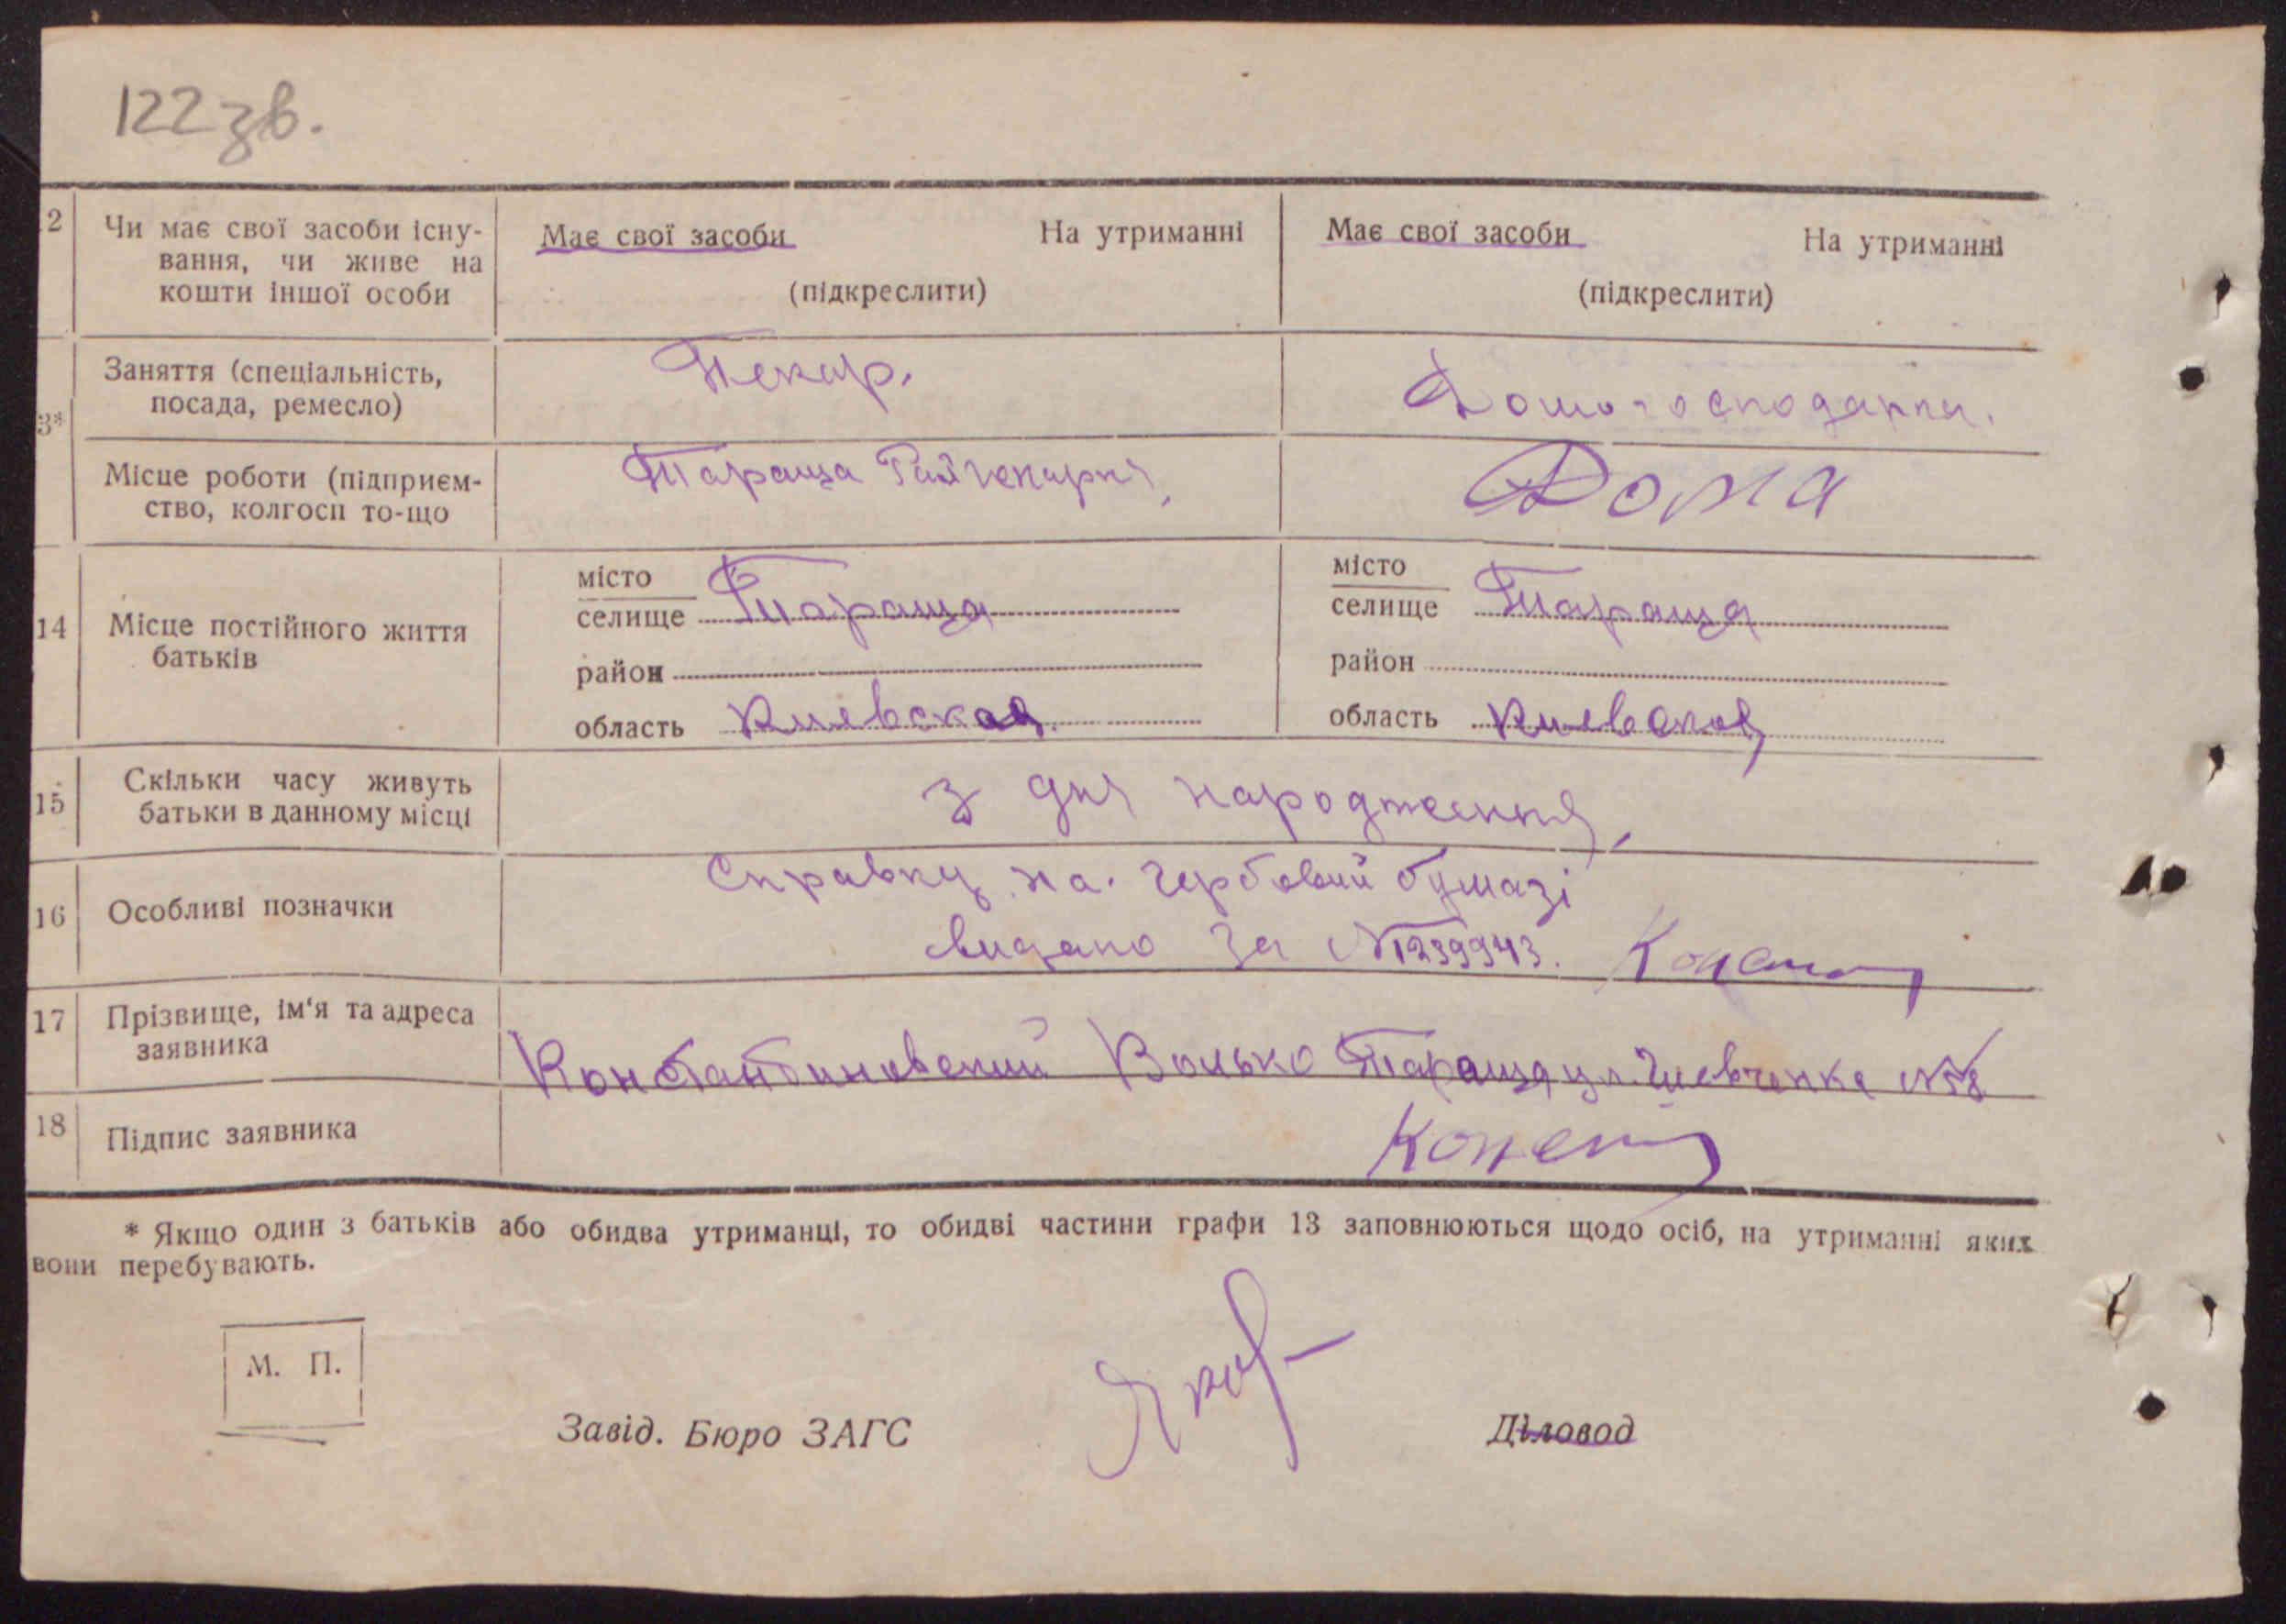 122 зв.
2 Чи має свої засоби існу- Має свої засоби На утриманні Має свої засоби На утриманні
вання, чи живе на
кошти іншої особи (підкреслити) (підкреслити)
3* Заняття (спеціальність, Пекар. Домогосподарка.
посада, ремесло)
Місце роботи (підприєм- Тараща Райпекарня, Дома
ство, колгосп то-що
14 Місце постійного життя батьків
місто
селище Тараща
район
область Киевская.
місто
селище Тараща
район
область Киевская
15 Скільки часу живуть з дня народження,
батьки в данному місці
16 Особливі позначки Справку на гербовий бумазі
видано за №1239943.
17 Прізвище, ім'я та адреса
заявника
Константиновский Волько Тараща ул. Шевченка №58
18 Підпис заявника
* Якщо один з батьків або обидва утриманці, то обидві частини графи 13 заповнюються щодо осіб, на утриманні яких
вони перебувають.
М. П.
Завід. Бюро ЗАГС Діловод